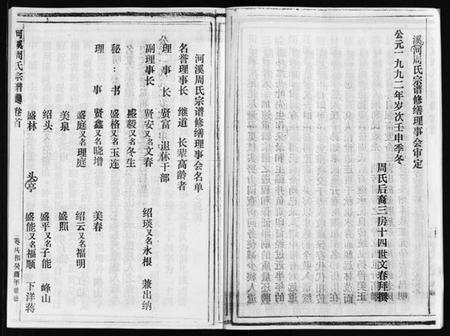 溪河周氏宗谱修缮理事会审定
公元一九九二年岁次壬申季冬
周氏后裔三房十四世文春拜撰
河溪周氏宗谱修缮理事会名单
名誉理事长 继道 长辈高龄者
理事长 贤富 退休干部
副理事长 贤安又名文春 绍瑛又名永根 兼出纳
盛毅又名冬生
秘书 盛格又名玉连
理事 贤鑫又名晓增 美春
盛庭又名理庭 绍云又名福明
美泉 盛照
绍头 盛平又名子能 峰山
盛林 头亭 盛能又名福顺 下洋蒋
河溪周氏宗谱 卷首